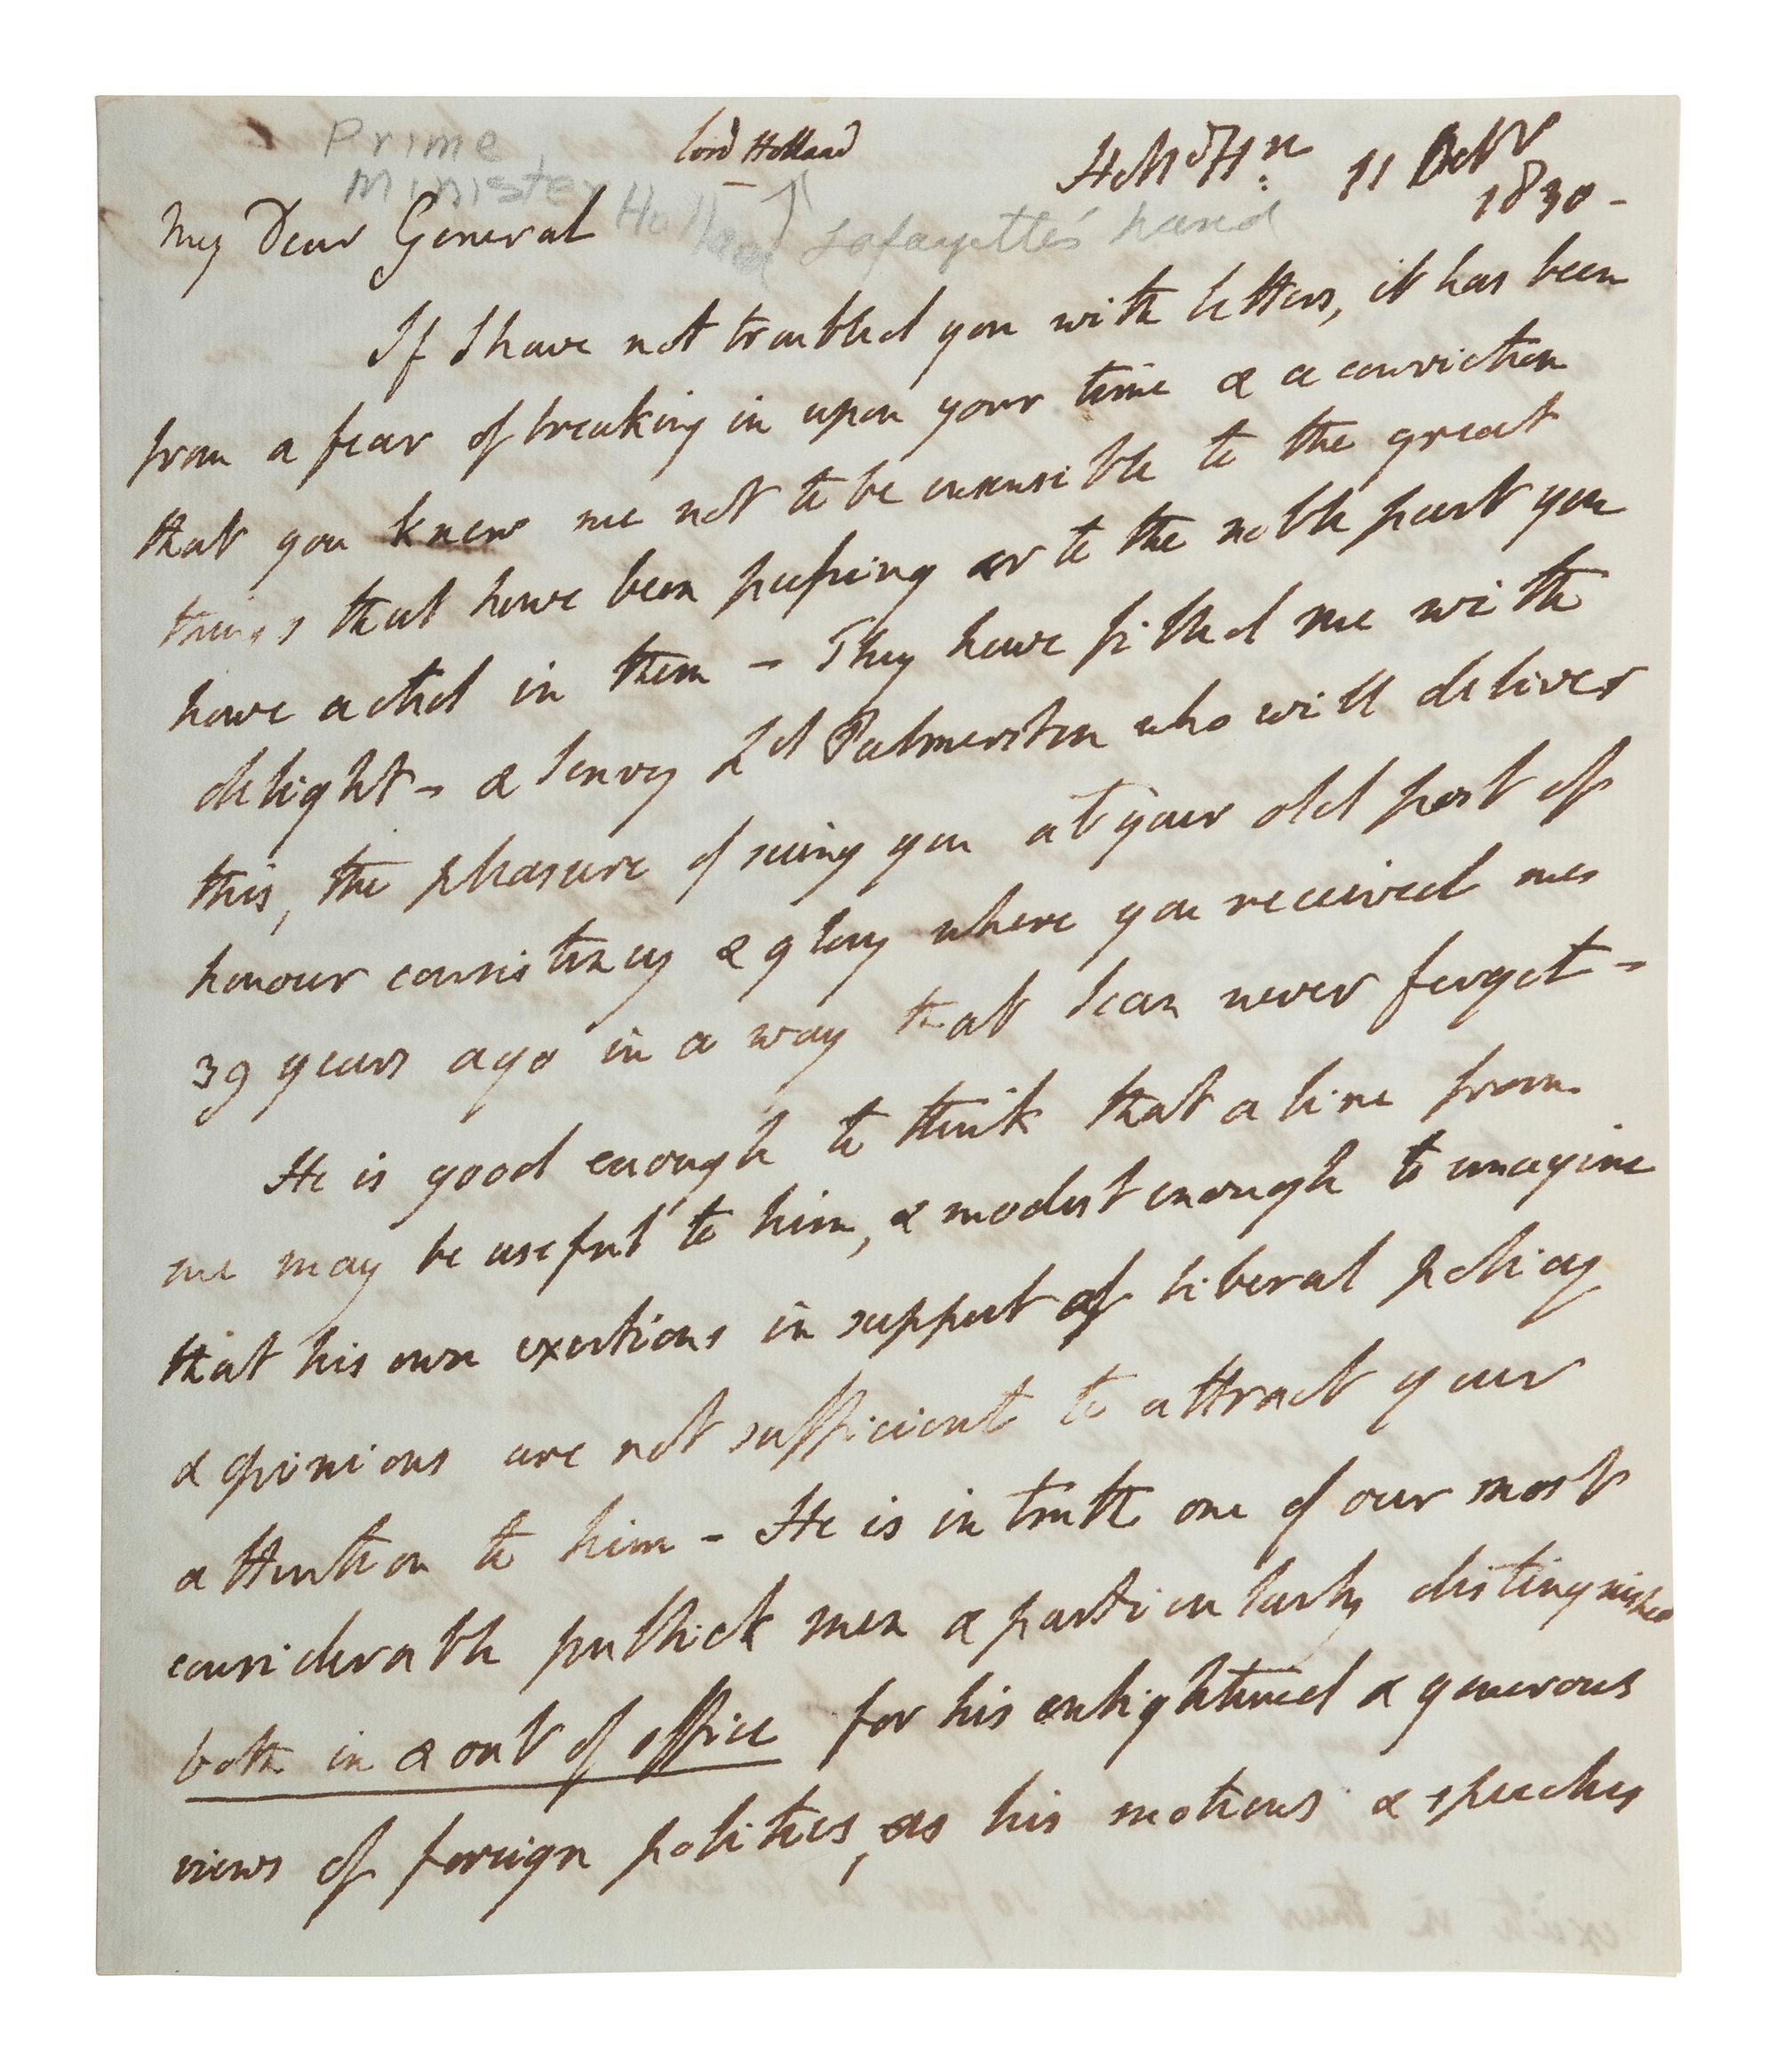 Prime
Minister Holland
Lord Holland
Lafayette's hand
Holld Hse 11 Octr
1830-
My Dear General
If I have not troubled you with letters, it has been
from a fear of breaking in upon your time & a conviction
that you knew me not to be insensible to the great
things that have been passing or to the noble part you
have acted in them - They have filled me with
delight - & I envy Ld Palmerston who will deliver
this, the pleasure of seeing you at your old post of
honour consistency & glory where you received me
39 years ago in a way that I can never forget -
He is good enough to think that a line from
me may be useful to him, & modest enough to imagine
that his own exertions in support of liberal policy
& opinions are not sufficient to attract your
attention to him - He is in truth one of our most
considerable publick men & particularly distinguished
both in & out of office for his enlightened & generous
views of foreign politics, as his motions & speeches